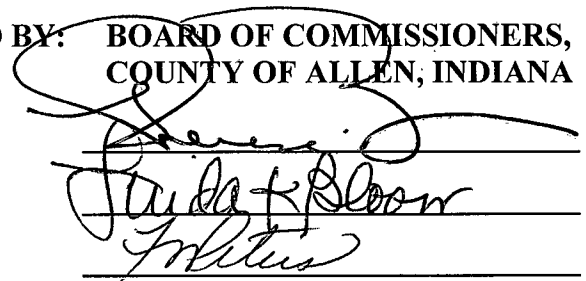 D BY: BOARD OF COMMISSIONERS,
COUNTY OF ALLEN, INDIANA
Linda K Bloom